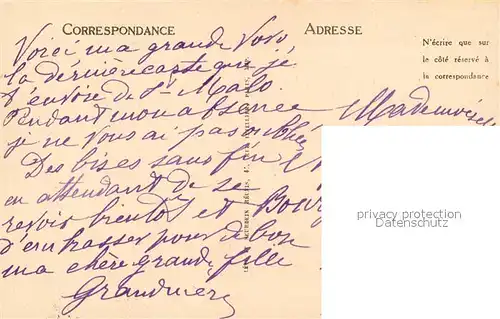 CORRESPONDANCE
ADRESSE
N'écrire que sur
le côté réservé à
la correspondance
Voici ma grande Vovo
la dernière carte que je
t'envoie de St-Malo.
Pendant mon absence
je ne vous ai pas oubliée
Des bises sans fin
en attendant de se
revoir bientôt et
d'embrasser pour de bon
ma chère grande fille
Grandmère
Mademoisel
Bourg
privacy protection
Datenschutz